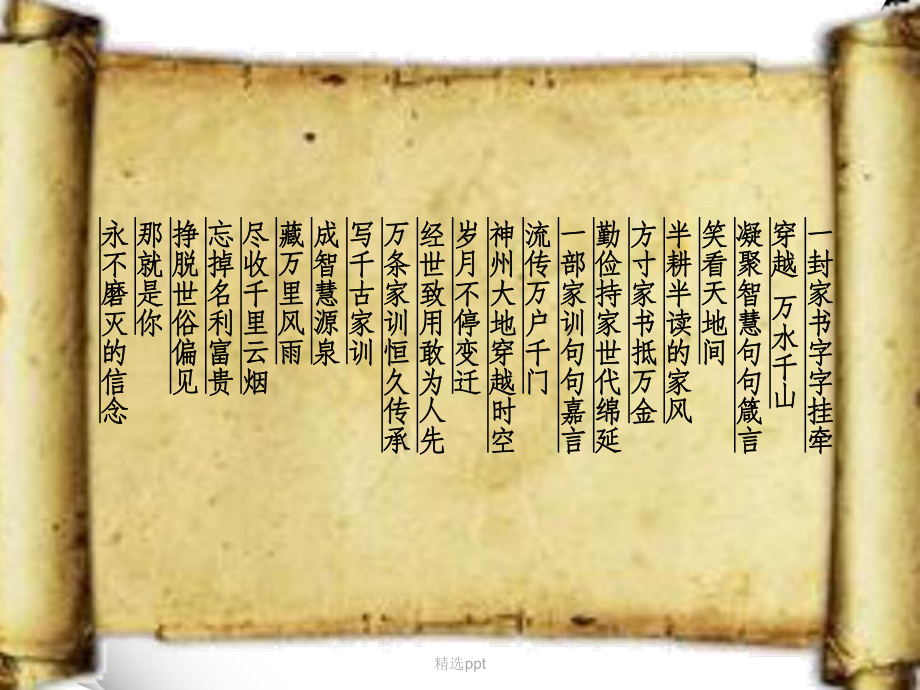 一封家书字字挂牵
穿越 万水千山
凝聚智慧句句箴言
笑看天地间
半耕半读的家风
方寸家书抵万金
勤俭持家世代绵延
一部家训句句嘉言
流传万户千门
神州大地穿越时空
岁月不停变迁
经世致用敢为人先
万条家训恒久传承
写千古家训
成智慧源泉
藏万里风雨
尽收千里云烟
忘掉名利富贵
挣脱世俗偏见
那就是你
永不磨灭的信念
精选ppt